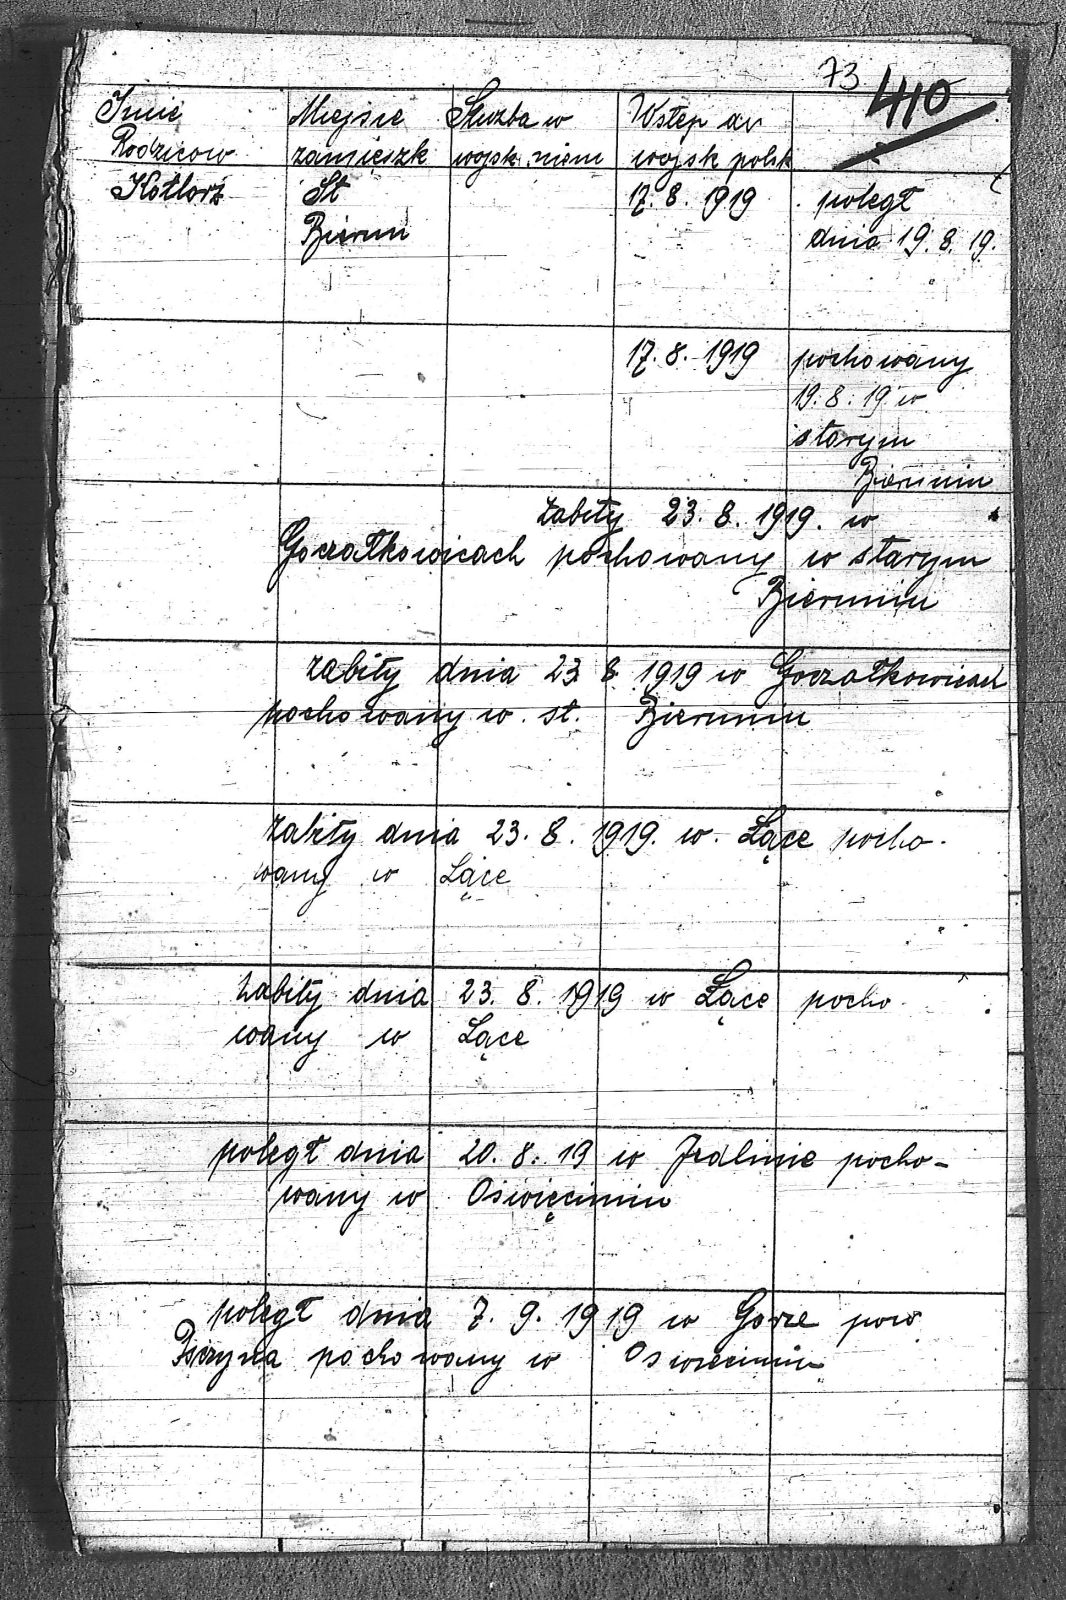 73 410
Imie Miejsce Służba w Wstęp do
Rodzicow zamieszk wojsk. niem wojsk polsk
Kotlorz St 17. 8. 1919 poległ
Bierun dnia 19. 8. 19.
17. 8. 1919 pochowany
19. 8. 19 w
starym
Bieruniu
zabity 23. 8. 1919. w
Goczałkowicach pochowany w starym
Bieruniu
zabity dnia 23 8. 1919 w Goczałkowicach
pochowany w. st. Bieruniu
zabity dnia 23. 8. 1919. w. Łące pocho-
wany w Łące
zabity dnia 23. 8. 1919 w Łące pocho-
wany w Łące
poległ dnia 20. 8. 19 w Jedlinie pocho-
wany w Oświęcimiu
poległ dnia 7. 9. 1919 w Gorze pow
Pszczyna pochowany w Oswiecimiu